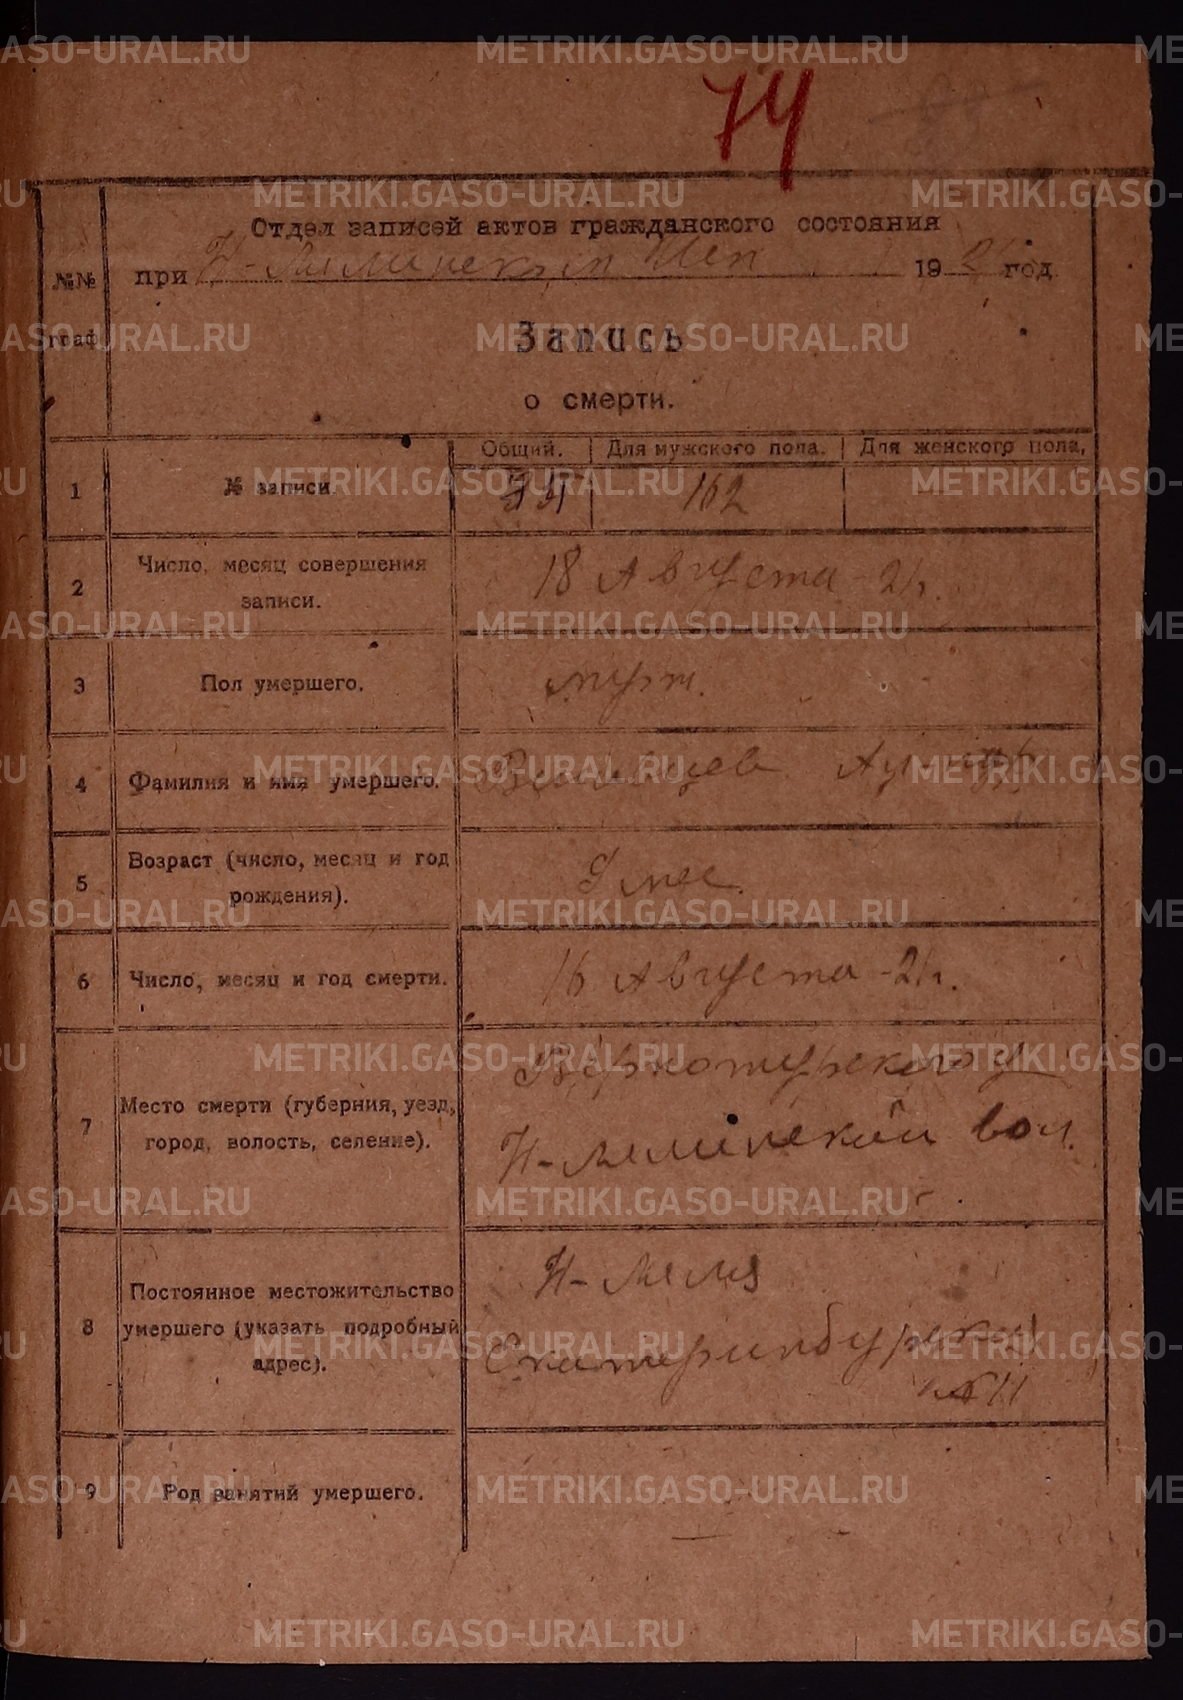 74
Отдел записей актов гражданского состояния
при Н- Исп 1921 год
№№ граф
Запись
о смерти.
Общий. Для мужского пола. Для женского пола.
1 № записи. 162
2 Число, месяц совершения записи. 18 Августа -21г.
3 Пол умершего. муж.
4 Фамилия и имя умершего.
5 Возраст (число, месяц и год рождения). мес.
6 Число, месяц и год смерти. 16 Августа -21г.
7 Место смерти (губерния, уезд, город, волость, селение). Верхотурского у
Н-Лялинской вол.
8 Постоянное местожительство умершего (указать подробный адрес). Н-Ляля
Екатеринбурская
№11
9 Род занятий умершего. —
METRIKI.GASO-URAL.RU